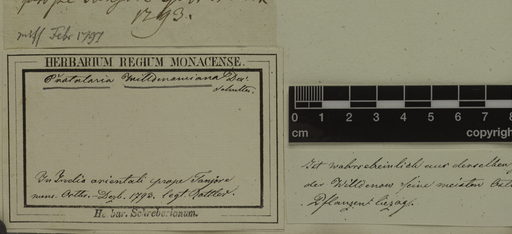 1793.
miss Febr 1797
HERBARIUM REGIUM MONACENSE.
Crotalaria Willdenowiana Dec.
In Indiae orientali prope Tanjore
mens. Octbr.-Dezb. 1793. legt Rottler.
Herbar. Schreberianum.
0 1 2 3 4 5 6 7 8
cm copyright
Ist wahrscheinlich aus derselben
der Willdenow seine meisten
Pflanzen bezog.